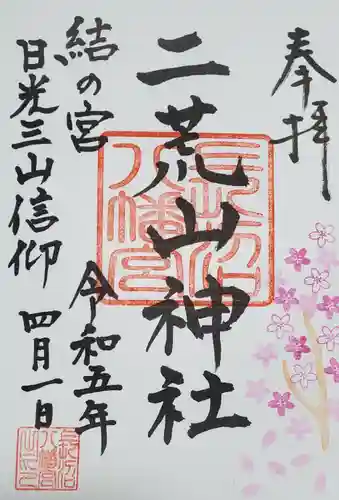 奉拝
二荒山神社
長沼
八幡宮
結の宮
令和五年
日光三山信仰
四月一日